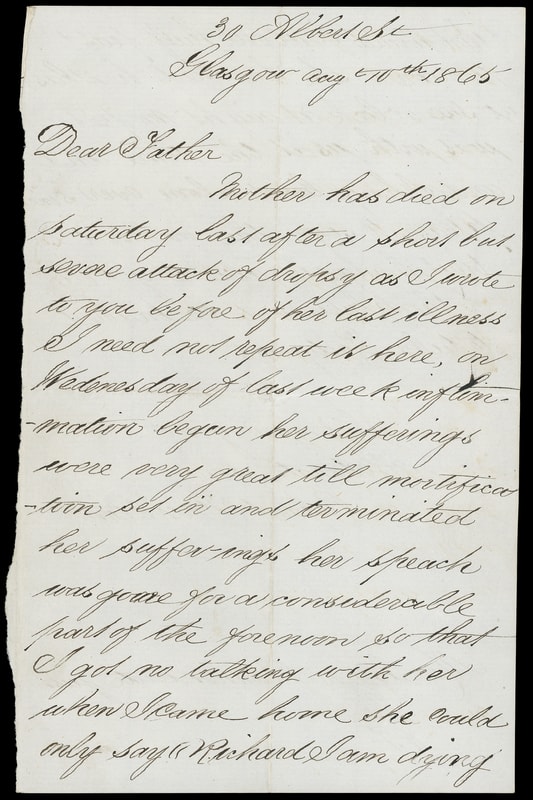 30 Albert St
Glasgow augt 10th 1865
Dear Father
Mother has died on
saturday last after a short but
severe attack of dropsy as I wrote
to you before of her last illness
I need not repeat it here, on
Wedensday of last week inflim-
-mation begun her sufferings
were very great till mortifica
-tion set in and terminated
her suffer-ings her speach
was gone for a considerable
part of the forenoon so that
I got no talking with her
when I came home she could
only say "Richard I am dying